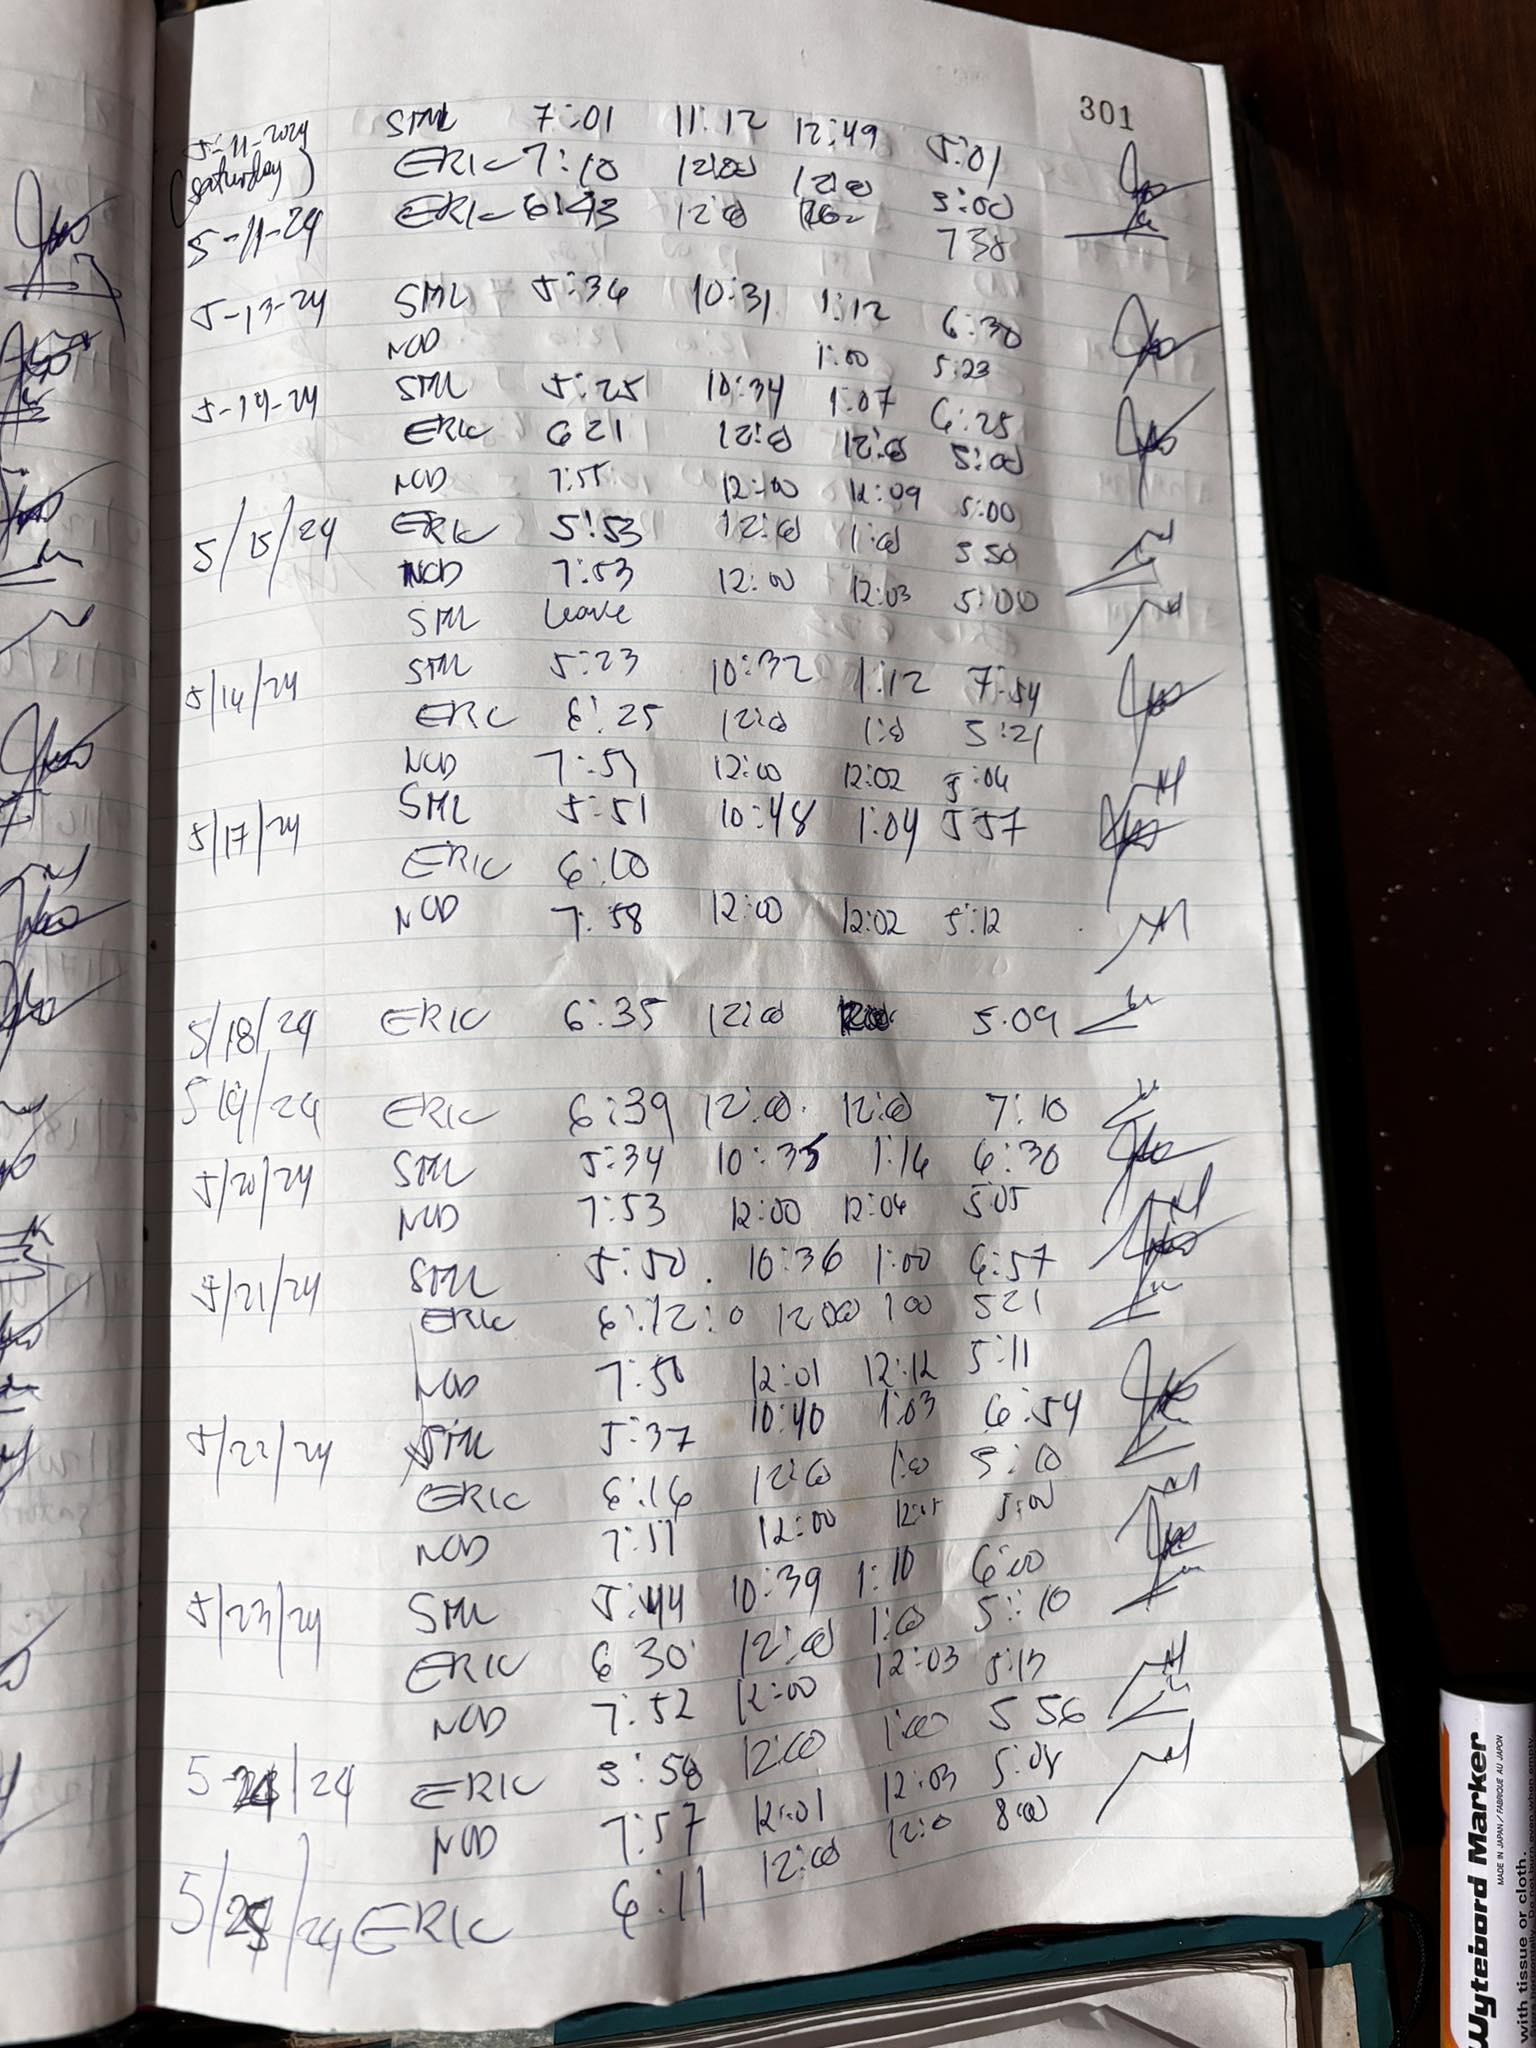 301
5-11-2024 SML 7:01 11:12 12:49 5:01
(Saturday) ERIC 7:10 12:00 12:00 5:00
5-11-24 ERIC 6:43 12:00 5:00
738
5-13-24 SML 5:36 10:31 1:12 6:30
NOD 1:00 5:23
5-14-24 SML 5:25 10:34 1:07 6:25
ERIC 6 21 12:00 12:00 5:00
NOD 7:55 12:00 12:09 5:00
5/15/24 ERIC 5:53 12:00 1:00 5 50
NOD 7:53 12:00 12:03 5:00
SML leave
5/16/24 SML 5:23 10:32 1:12 7:54
ERIC 6:25 12:00 1:00 5:21
NOD 7:59 12:00 12:02 5:06
5/17/24 SML 5:51 10:48 1:04 5:57
ERIC 6:10
NOD 7:58 12:00 12:02 5:12
5/18/24 ERIC 6:35 12:00 5.09
5/19/24 ERIC 6:39 12:00 12:00 7:10
5/20/24 SML 5:34 10:35 1:16 6:30
NOD 7:53 12:00 12:06 5:05
5/21/24 SML 5:50 10:36 1:00 6:57
ERIC 6:12:0 12:00 1 00 521
NOD 7:50 12:01 12:12 5:11
5/22/24 SML 5:37 10:40 1:03 6:54
ERIC 6:16 12:00 1:00 5:10
NOD 7:57 12:00 12:05 5:00
5/23/24 SML 5:44 10:39 1:10 6:00
ERIC 6 30 12:00 1:00 5:10
NOD 7:52 12:00 12:03 5:13
5-24/24 ERIC 5:58 12:00 1:00 5 56
NOD 7:57 12:01 12:03 5:08
5/25/24 ERIC 6:11 12:00 12:0 8:00
Wytebord Marker
MADE IN JAPAN / FABRIQUE AU JAPON
with tissue or cloth.